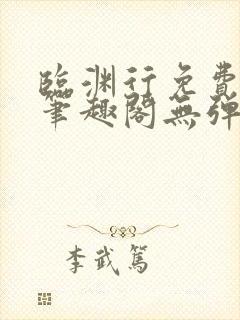 臨渊行免費
筆趣閣無彈
李武篤